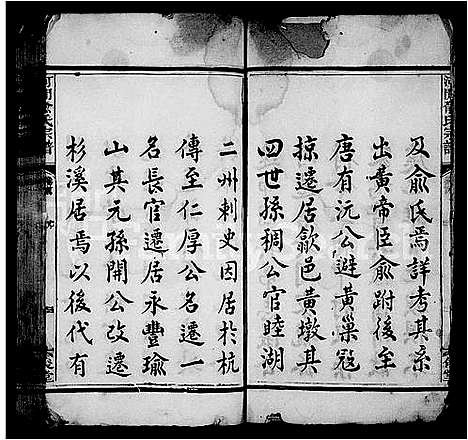 及俞氏焉詳考其系
出黄帝臣俞跗後至
唐有沅公避黄巢冦
掠遷居歙邑黄墩其
四世孫稠公官睦湖
二州刺史因居於杭
傳至仁厚公名遷一
名長官遷居永豐瑜
山其元孫開公改遷
杉溪居焉以後代有